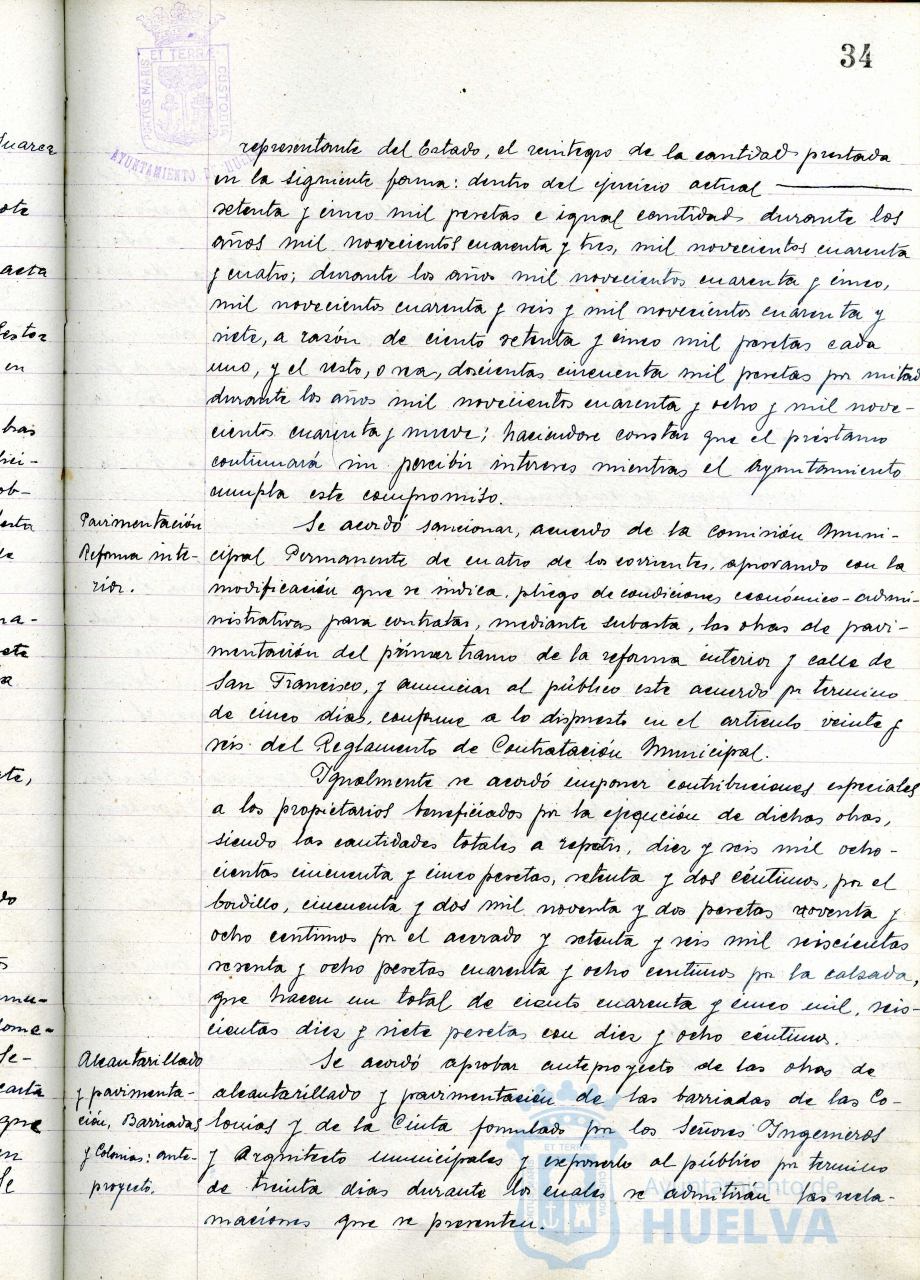 34
PORTUS MARIS ET TERRAE CUSTODIA
AYUNTAMIENTO DE HUELVA
representante del Estado, el reintegro de la cantidad prestada
en la siguiente forma: dentro del ejercicio actual
setenta y cinco mil pesetas e igual cantidad durante los
años mil novecientos cuarenta y tres, mil novecientos cuarenta
y cuatro; durante los años mil novecientos cuarenta y cinco,
mil novecientos cuarenta y seis y mil novecientos cuarenta y
siete, a rasón de ciento setenta y cinco mil pesetas cada
uno, y el resto, o sea, doscientas cincuenta mil pesetas por mitad
durante los años mil novecientos cuarenta y ocho y mil nove-
cientos cuarenta y nueve; haciendose constar que el préstamo
continuará sin percibir intereses mientras el Ayuntamiento
cumpla este compromiso.
Pavimentación
Reforma inte-
rior.
Se acordó sancionar, acuerdo de la comisión Muni-
cipal Permanente de cuatro de los corrientes, aprobando con la
modificación que se indica, pliego de condiciones económico-admi-
nistrativas para contratas, mediante subasta, las obras de pavi-
mentación del primer tramo de la reforma interior y calle de
San Francisco, y anunciar al público este acuerdo por termino
de cinco dias, conforme a lo dispuesto en el articulo veinte y
seis del Reglamento de Contratación Municipal.
Igualmente se acordó imponer contribuciones especiales
a los propietarios beneficiados por la ejecución de dichas obras,
siendo las cantidades totales a repetir, diez y seis mil ocho-
cientas cincuenta y cinco pesetas, setenta y dos céntimos, por el
bordillo, cincuenta y dos mil noventa y dos pesetas noventa y
ocho centimos por el acerado y setenta y seis mil seiscientas
sesenta y ocho pesetas cuarenta y ocho centimos por la calsada,
que hacen un total de ciento cuarenta y cinco mil, seis-
cientas diez y siete pesetas con diez y ocho céntimos.
Alcantarillado
y pavimenta-
ción, Barriadas
y Colonias: ante-
proyecto.
Se acordó aprobar anteproyecto de las obras de
alcantarillado y pavimentación de las barriadas de las Co-
lonias y de la Cinta formulado por los Señores Ingenieros
y Arquitecto municipales y exponerlo al público por termino
de treinta dias durante los cuales se admitiran las recla-
maciones que se presenten.
Ayuntamiento de
HUELVA